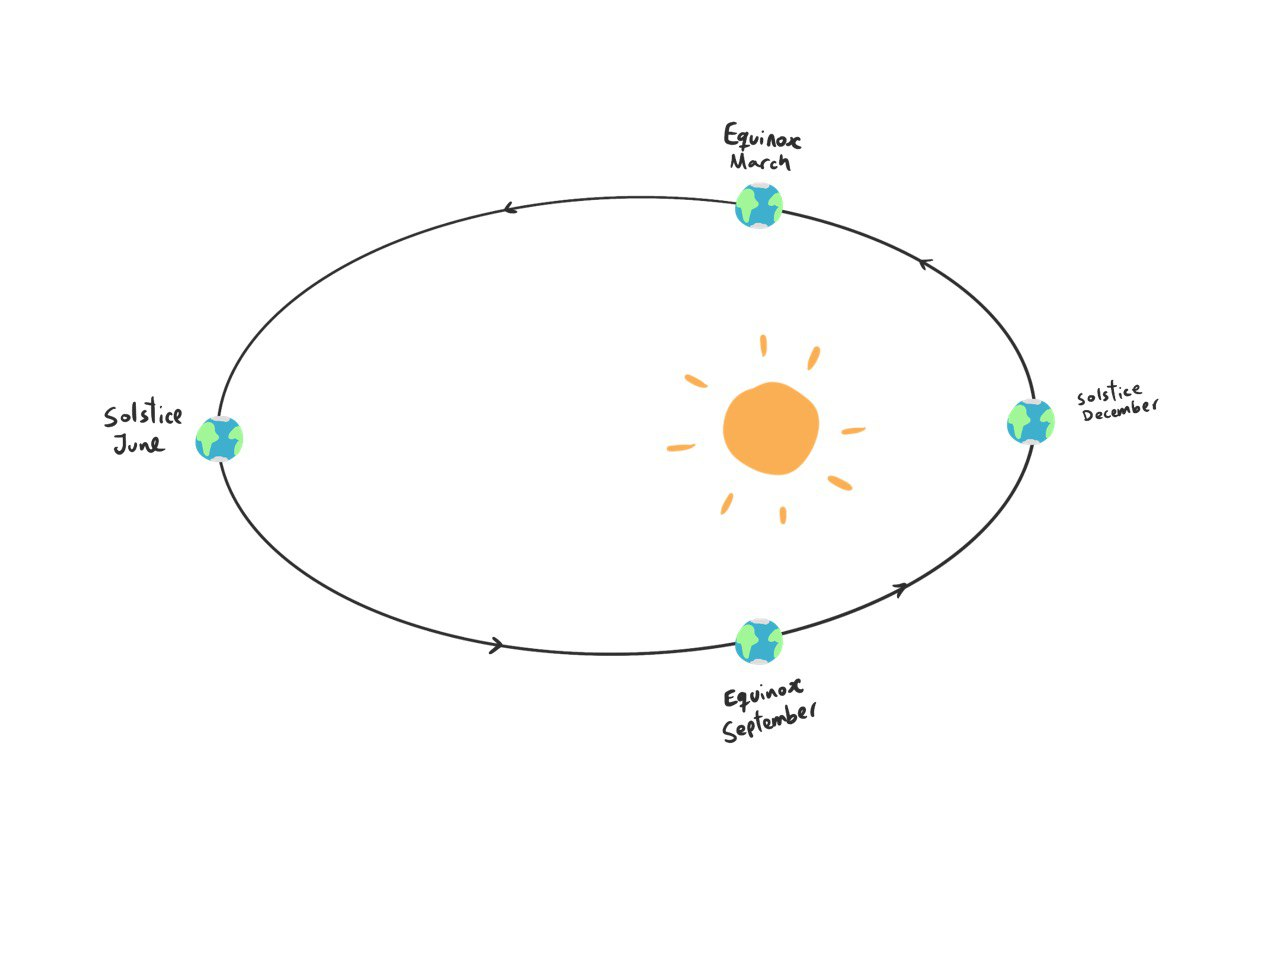 Equinox
March
Solstice
June
Solstice
December
Equinox
September